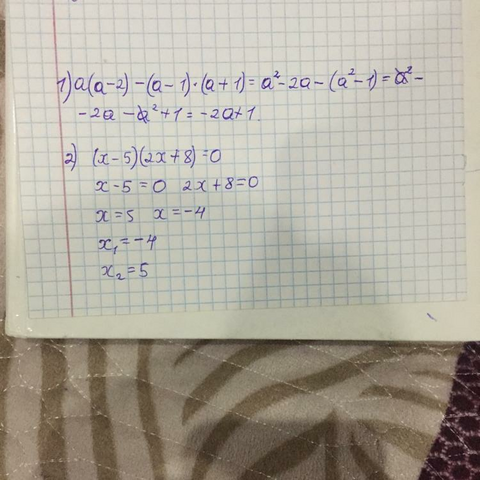 1) a(a-2) - (a-1)·(a+1) = a² - 2a - (a² - 1) = a² -
- 2a - a² + 1 = -2a+1.
2) (x-5)(2x+8)=0
x-5=0 2x+8=0
x=5 x=-4
x₁=-4
x₂=5